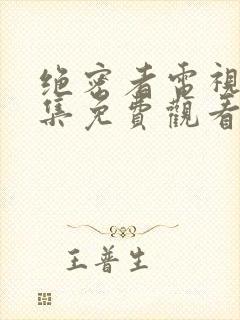 绝密者電視
集免費觀看
王普生